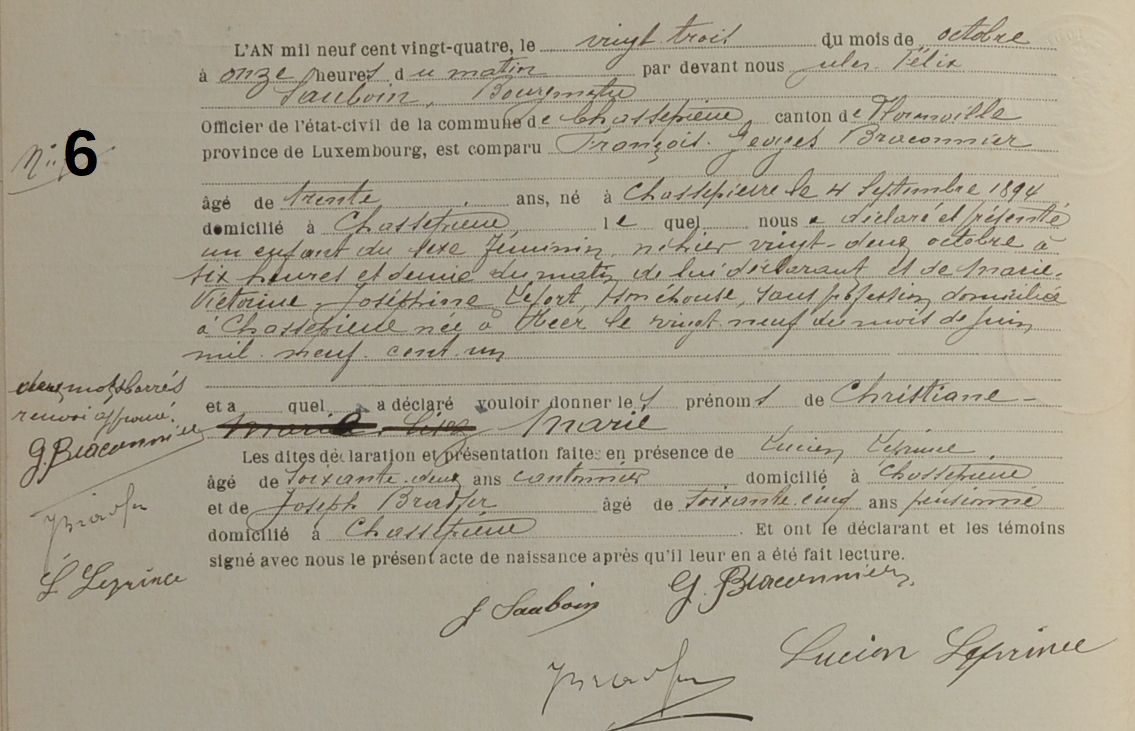 L'AN mil neuf cent vingt-quatre, le vingt trois du mois de octobre
à onze heures du matin par devant nous Jules Félix
Sauboin, Bourgmestre
Officier de l'état-civil de la commune de Chassepierre, canton de Florenville
province de Luxembourg, est comparu François Georges Braconnier
6
âgé de trente ans, né à Chassepierre le 4 Septembre 1894
domicilié à Chassepierre, le quel nous a déclaré et présenté
un enfant du sexe féminin, né hier vingt-deux octobre à
six heures et demie du matin de lui déclarant et de Marie-
Victorine Joséphine Lefort, son épouse, sans profession, domiciliée
à Chassepierre née à Heer le vingt neuf du mois de juin
mil neuf cent un
deux mots barrés
renvoi approuvé.
G. Braconnier
L Leprince
et a quel a déclaré vouloir donner les prénoms de Christiane -
Marie Marie
Les dites déclaration et présentation faites en présence de Lucien Leprince
âgé de soixante-deux ans cantonnier domicilié à Chassepierre
et de Joseph âgé de soixante-cinq ans pensionné
domicilié à Chassepierre. Et ont le déclarant et les témoins
signé avec nous le présent acte de naissance après qu'il leur en a été fait lecture.
J Sauboin
G. Braconnier
Lucien Leprince